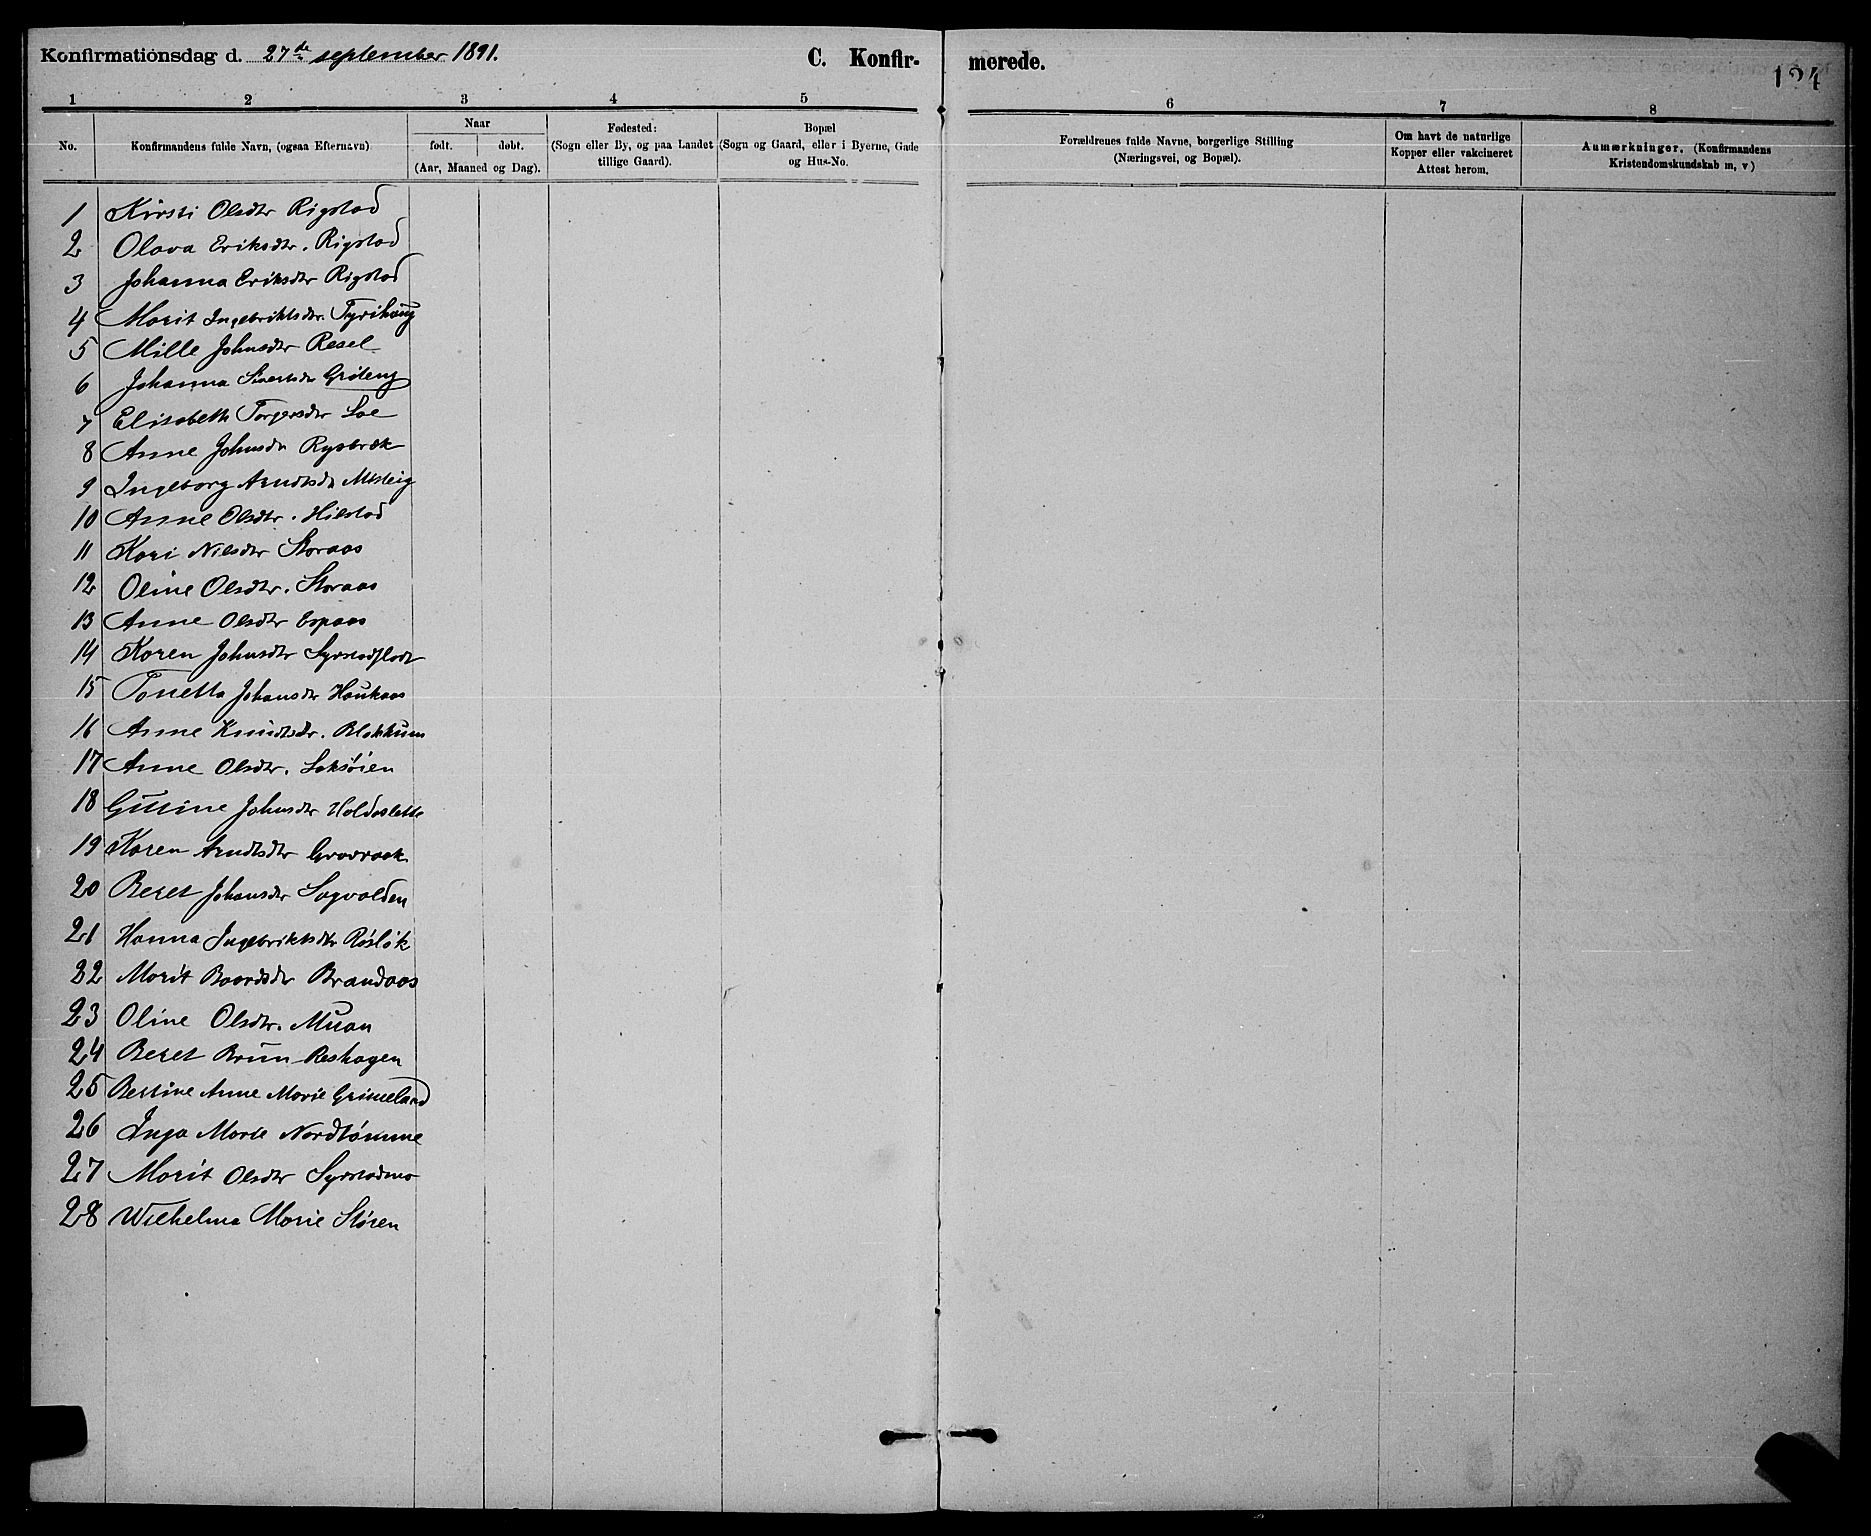 Konfirmationsdag d. 27de september 1891.
C. Konfir-
merede.
1 2 3 4 5 6 7 8
No.
Konfirmandens fulde Navn, (ogsaa Efternavn)
Naar
født. døbt.
(Aar, Maaned og Dag).
Fødested:
(Sogn eller By, og paa Landet
tillige Gaard).
Bopæl
(Sogn og Gaard, eller i Byerne, Gade
og Hus-No.
Forældrenes fulde Navne, borgerlige Stilling
(Næringsvei, og Bopæl).
Om havt de naturlige
Kopper eller vakcineret
Attest herom.
Anmærkninger. (Konfirmandens
Kristendomskundskab m, v)
1 Kirsti Olsdtr Rigstad
2 Olava Eriksdtr. Rigstad
3 Johanna Eriksdtr Rigstad
4 Marit Ingebriktsdtr. Tyrihaug
5 Mille Johnsdtr Resel
6 Johanna Sivertsdr Gröteng
7 Elisabeth Torgersdtr Loe
8 Anne Johnsdr Rysbræk
9 Ingeborg Arndtsdr
10 Anne Olsdtr. Hilstad
11 Kari Nilsdtr Storaas
12 Oline Olsdtr. Storaas
13 Anne Olsdtr Espaas
14 Karen Johnsdtr Syrstadflodt
15 Tonetta Johansdtr Haukaas
16 Anne Knudtsdr. Blokkum
17 Anne Olsdtr. Laksöien
18 Gusine Johnsdtr Holdsslette
19 Karen Arndtsdtr Gravraak
20 Beret Johansdtr Sagvolden
21 Hanna Ingebriktsdtr Röslök
22 Marit Baardsdtr Brandaas
23 Oline Olsdtr. Muan
24 Beret Brun Reshagen
25 Bertine Anne Marie Grimeland
26 Inga Marie Nordtömme
27 Marit Olsdtr Syrstadmo
28 Wilhelma Marie Stören